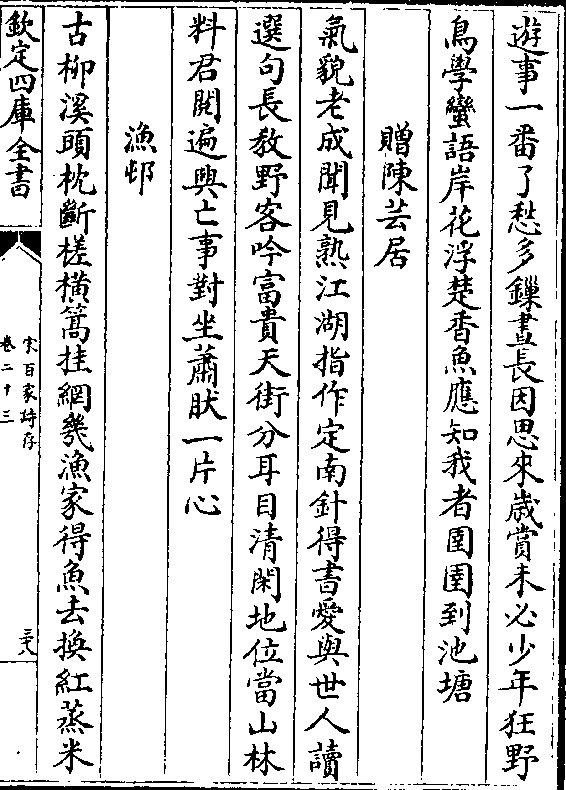 遊事一番了愁多鏁晝長因思來歲賞未必少年狂野
鳥學蠻語岸花浮楚香魚應知我者圉圉到池塘
贈陳芸居
氣貌老成聞見熟江湖指作定南針得書愛與世人讀
選句長教野客吟富貴天街分耳目清閑地位當山林
料君閱遍興亡事對坐蕭肰一片心
漁邨
古柳溪頭枕斷槎橫篙挂網幾漁家得魚去換紅蒸米
欽定四庫全書
宋百家詩存
卷二十三
三八